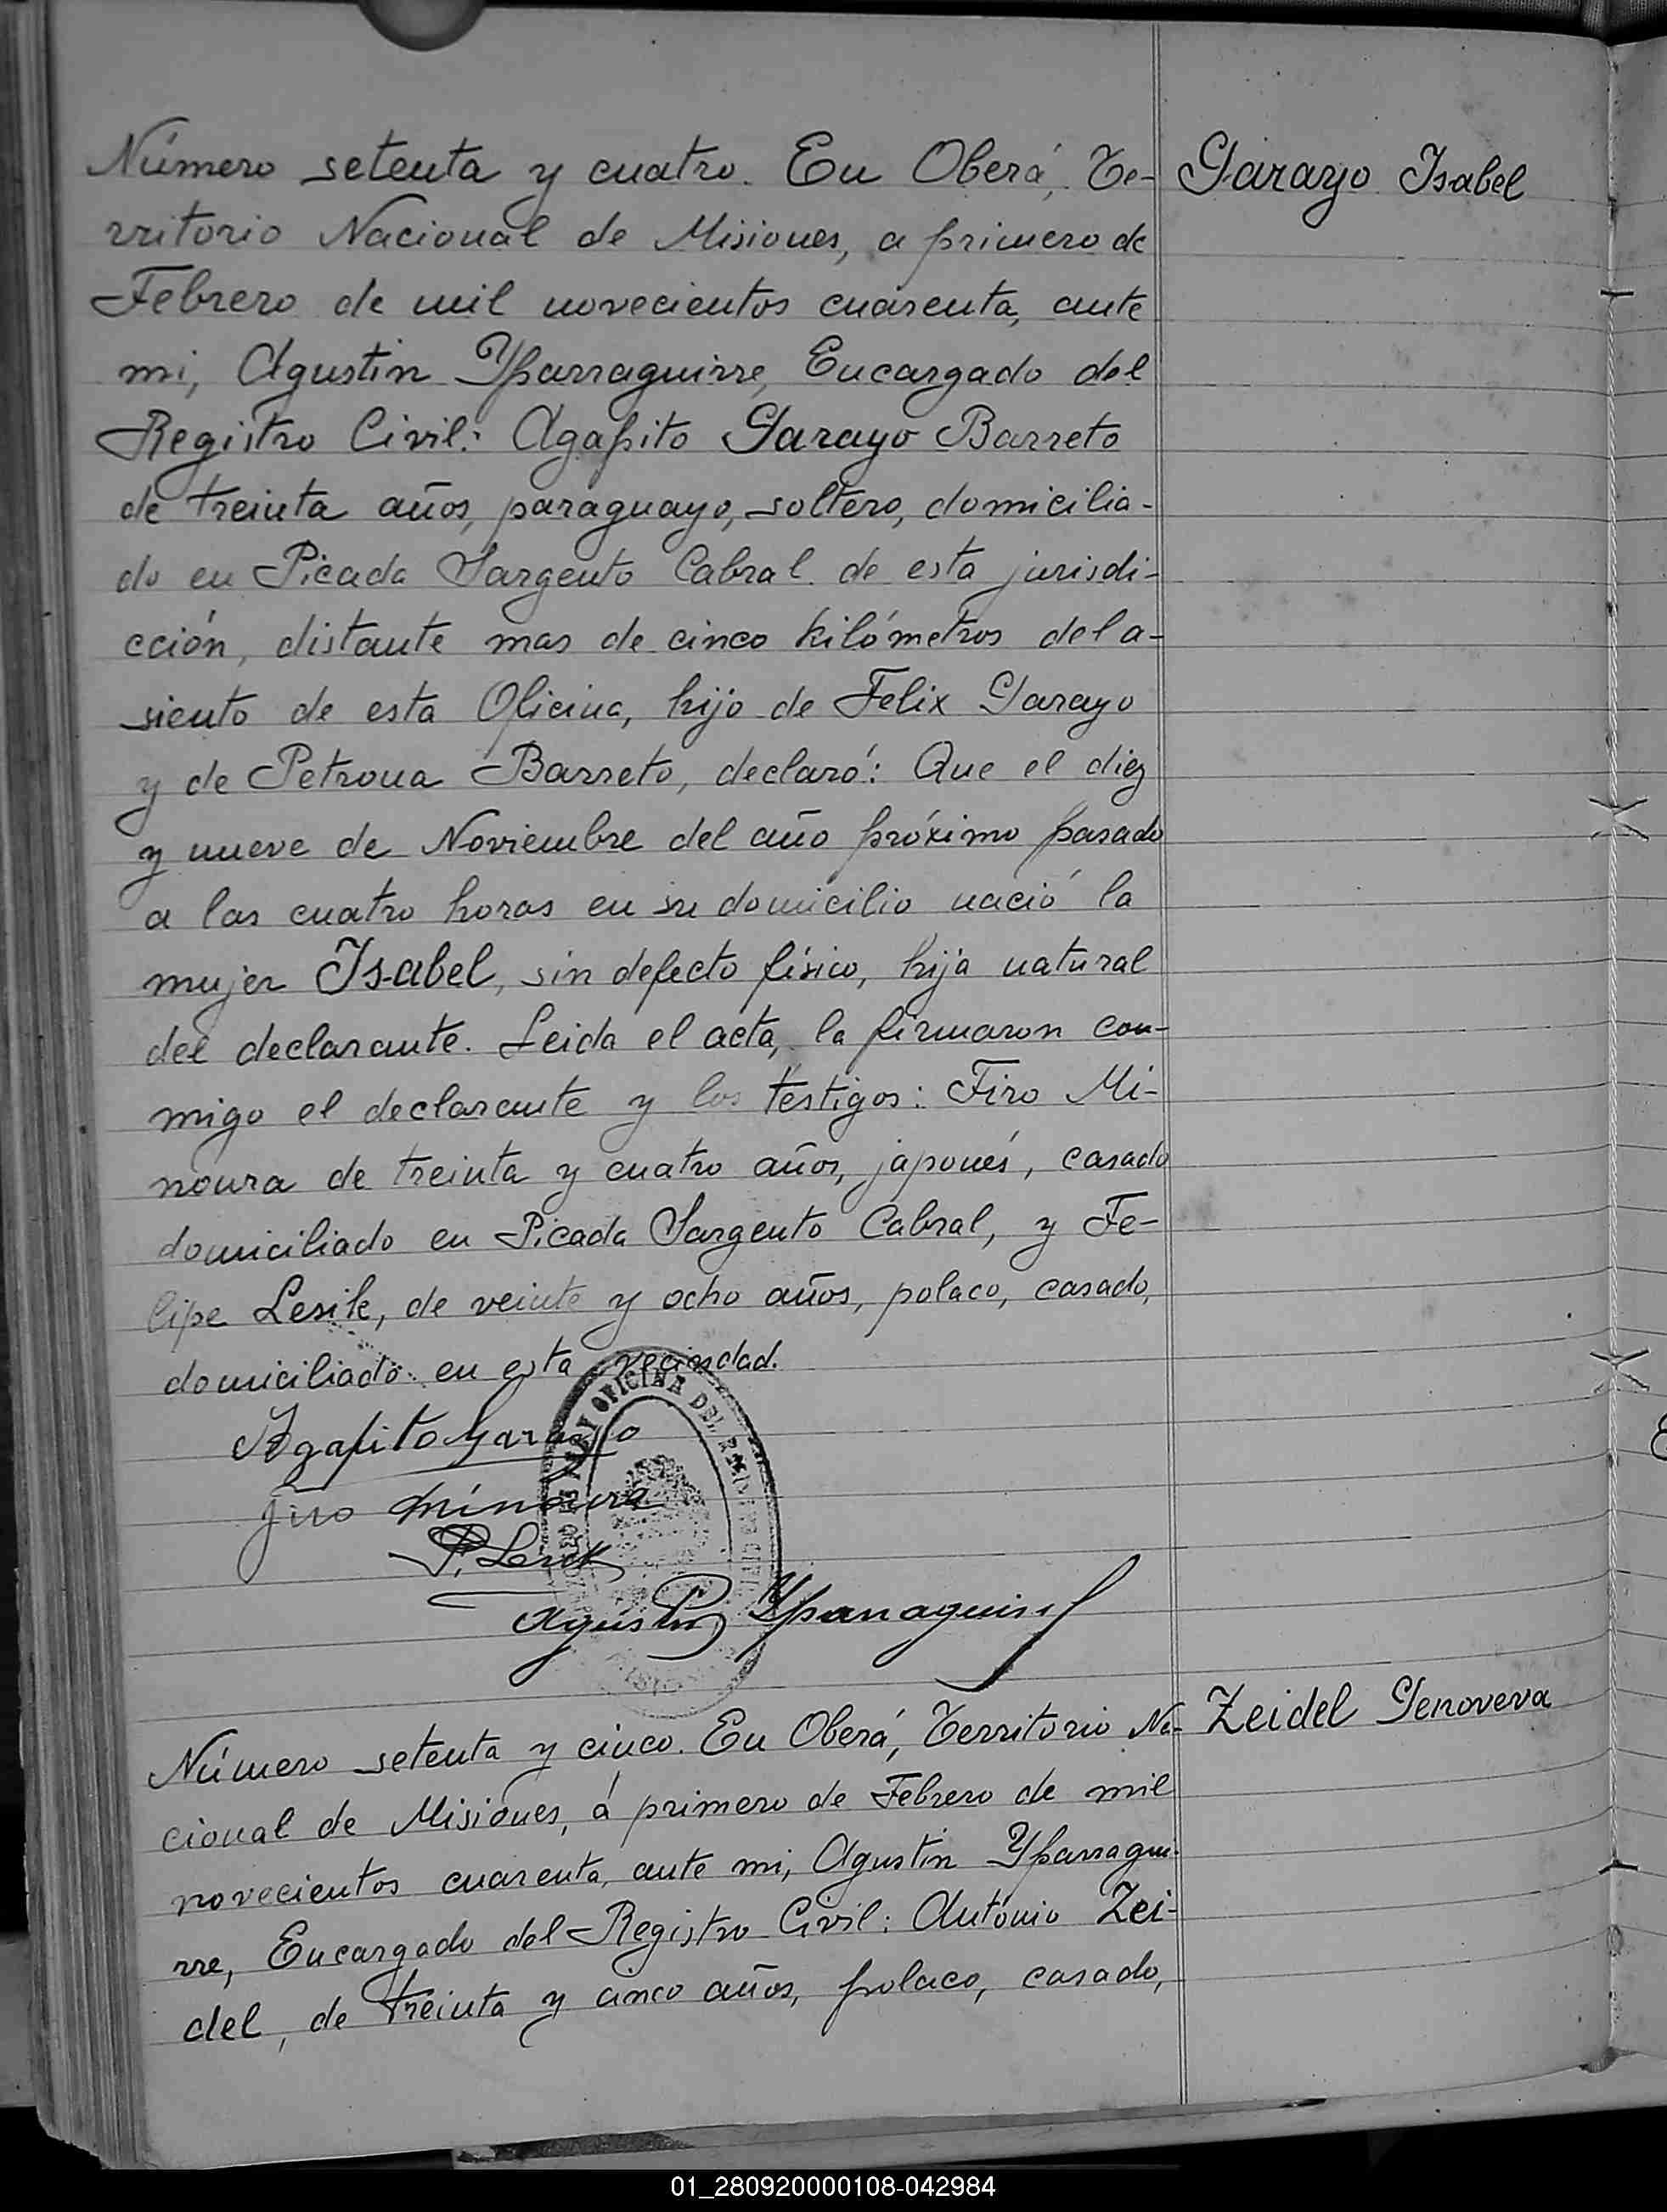 Número setenta y cuatro. En Oberá, Te-
Garayo Isabel
rritorio Nacional de Misiones, a primero de
Febrero de mil novecientos cuarenta, ante
mi, Agustin Yparraguirre, Encargado del
Registro Civil: Agapito Garayo Barreto
de treinta años, paraguayo, soltero, domicilia-
do en Picada Sargento Cabral de esta jurisdi-
cción, distante mas de cinco kilómetros del a-
siento de esta Oficina, hijo de Felix Garayo
y de Petrona Barreto, declaró: Que el diez
y nueve de Noviembre del año próximo pasado
a las cuatro horas en su domicilio nació la
mujer Isabel, sin defecto físico, hija natural
del declarante. Leida el acta, la firmaron con-
migo el declarante y los testigos: Firo Mi-
noura de treinta y cuatro años, japonés, casado
domiciliado en Picada Sargento Cabral, y Fe-
lipe Lesik, de veinte y ocho años, polaco, casado,
domiciliado en esta vecindad.
Agapito Garayo
Jiro Minoura
OFICINA DEL
Agustin Yparraguirre
Número setenta y cinco. En Oberá, Territorio Na-
Zeidel Genoveva
cional de Misiones, á primero de Febrero de mil
novecientos cuarenta, ante mi, Agustin Yparragui-
rre, Encargado del Registro Civil: António Zei-
del, de treinta y cinco años, polaco, casado,
01_280920000108-042984